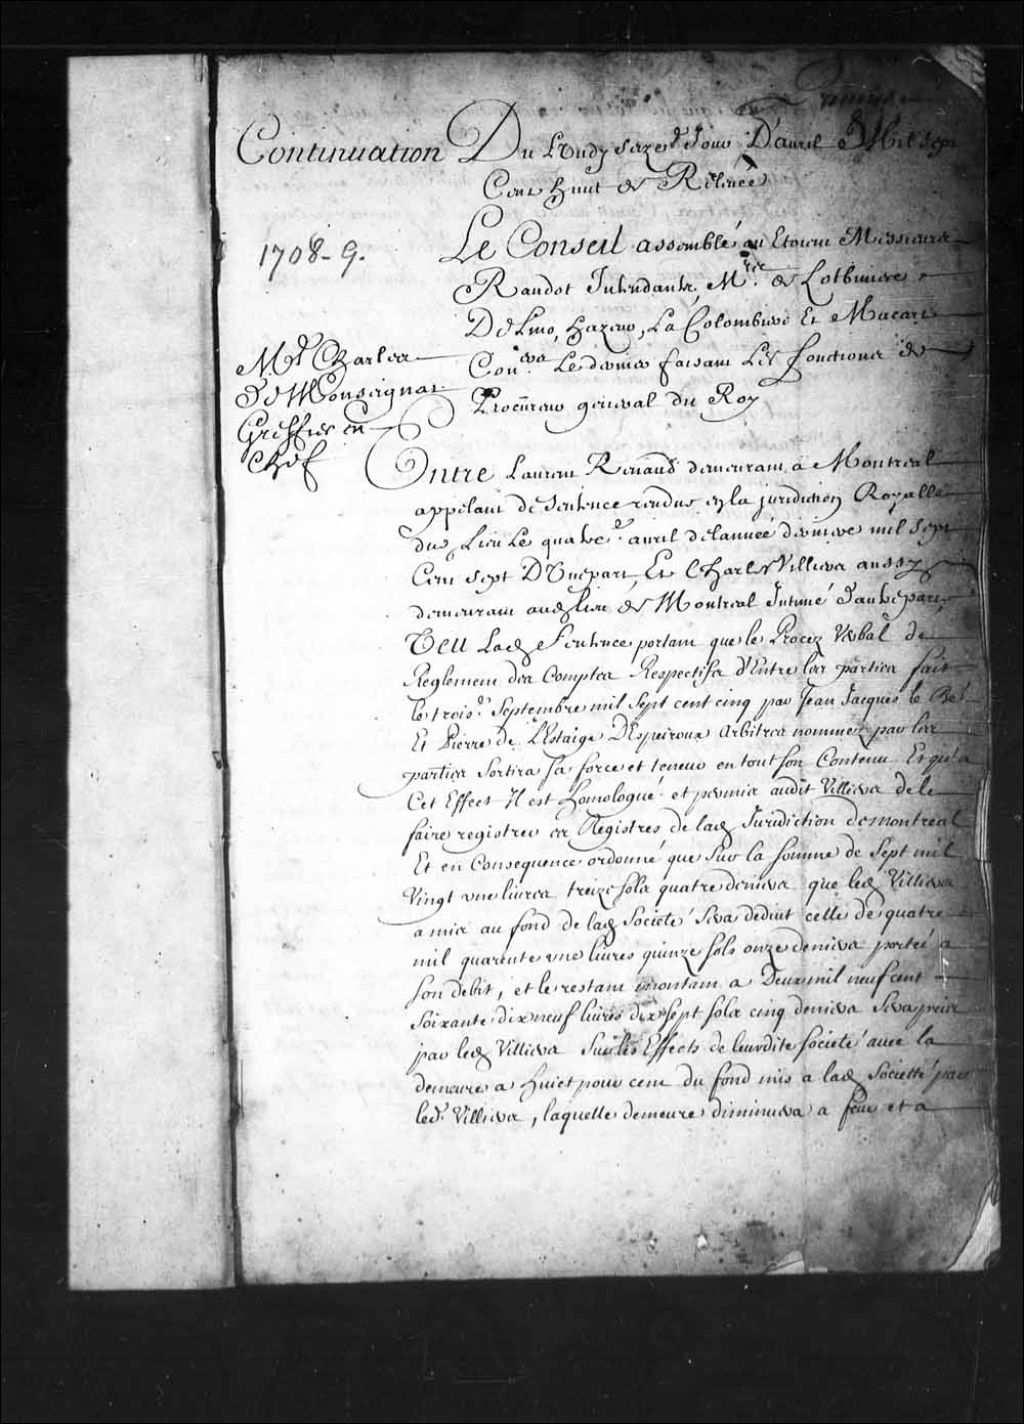 Continuation Du Lundy seize.e Jour D'auril Mil sept
Cent huit de Relevée
Le Conseil assemblé ou Etoient Messieurs
1708-9.
Raudot Intendant. M.tre de Lotbiniere
DeLino, hazeur, La Colombiere Et Macart
Con.ers Le dernier faisant Les fonctions de
Procureur general du Roy
M.e Charles
De Monseignat
Greffier en
Chef
Entre Laurent Renaud demeurant a Montreal
appelant de Sentence rendue en la juridiction Royalle
dud Lieu Le quatre.e auril de lanneé derniere mil sept
Cent sept D'Vnepart, Et Charles Villiers aussy
demeurant aud lieu de Montreal Intimé d'autrepart
Veu Lad Sentence portant que le Procez Verbal de
Reglement des Comptes Respectifs d'Entre les parties fait
le trois.e Septembre mil sept cent cinq par Jean Jacques le Bé
Et Pierre de L'Estaige DEspeiroux arbitres nommez par les
parties Sortira sa force et teneur en tout son Contenu Et qu'a
Cet Effect Il est homologué et permis audit Villiers de le
faire registrer es Registres de lad Juridiction de montreal
Et en Consequence ordonné que Sur la somme de Sept mil
Vingt vne liures treize sols quatre deniers que led Villiers
a mis au fond de lad Societé Sera deduit celle de quatre
mil quarente vne liures quinze sols onze deniers porteé a
son debit, et le restant montant a Deux mil neuf cent
Soixante dix neuf liures dix sept sols cinq deniers Sera pris
par led Villiers Sur les Effects de leurdite societé auec la
demeure a huict pour cent du fond mis a lad Societté par
led. Villiers, laquelle demeure diminuera a feur et a